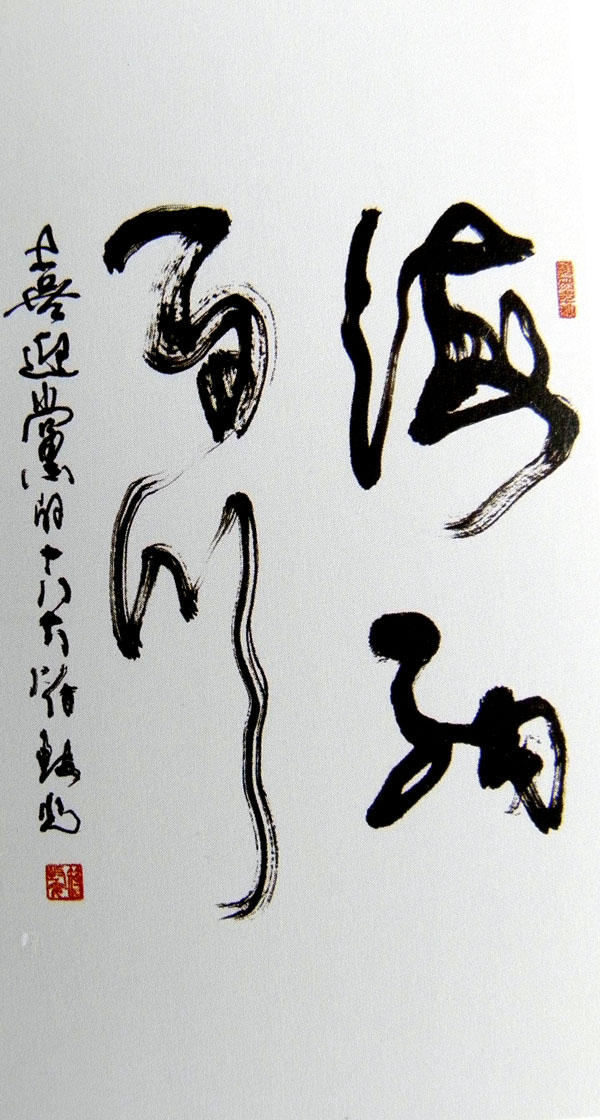 海纳
百川
喜迎党的十八大